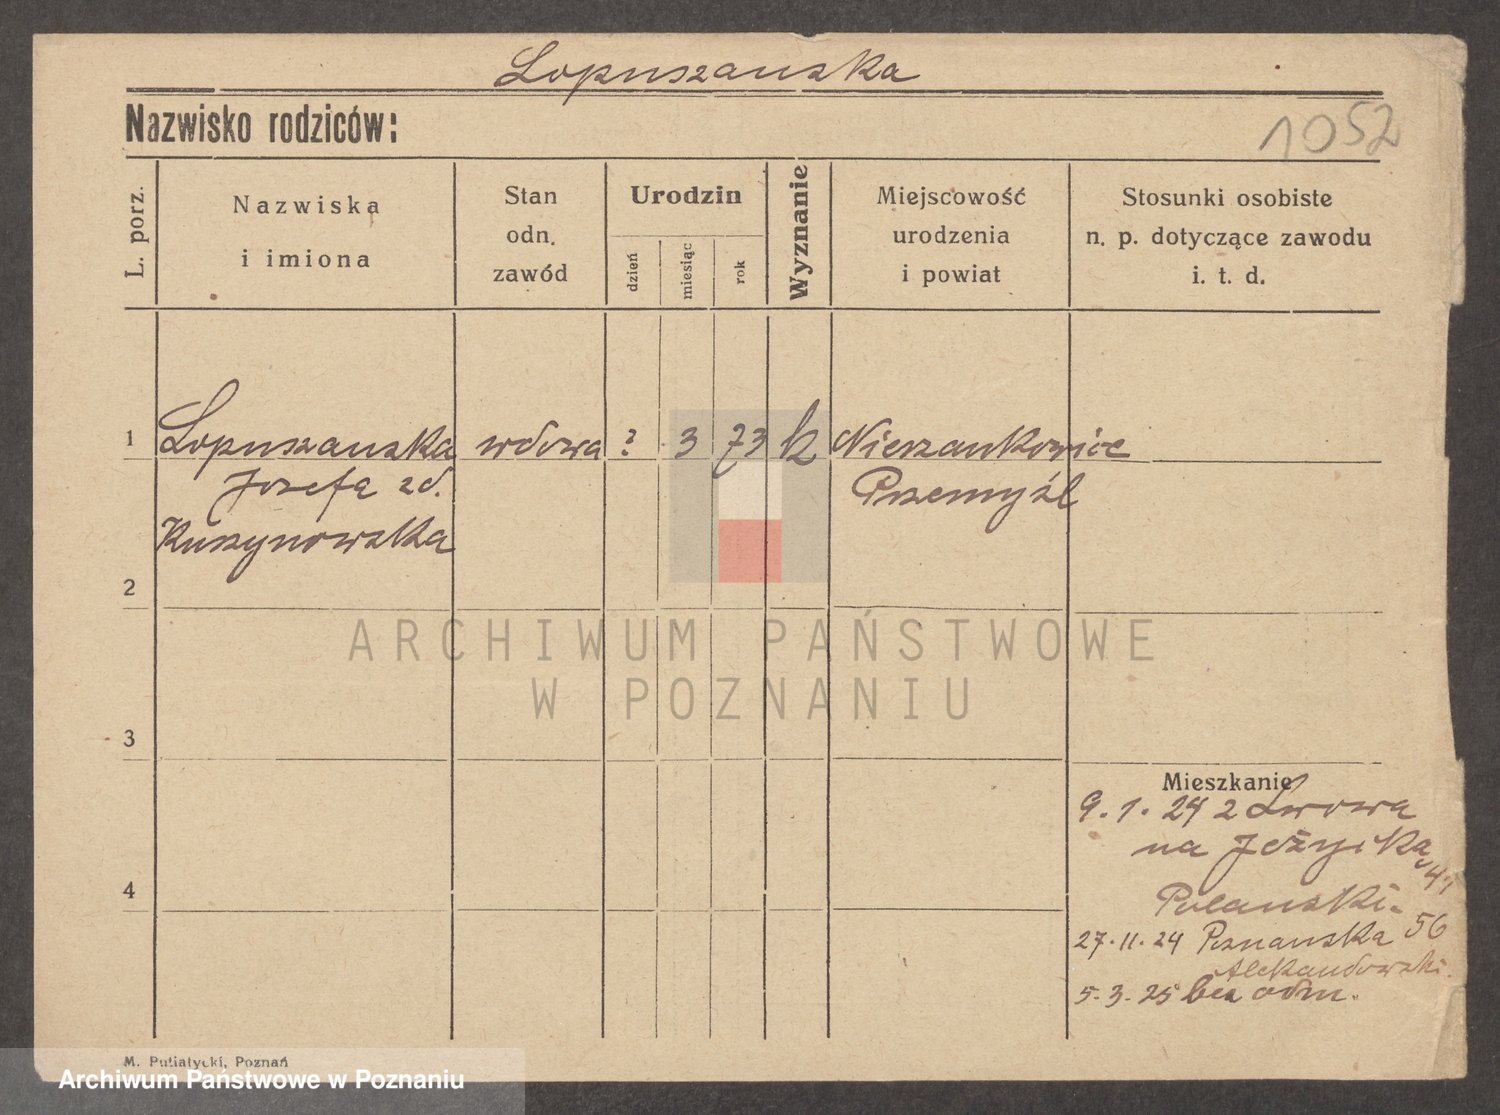 Lopuszanska
Nazwisko rodziców:
1052
L. porz.
Nazwiska
i imiona
Stan
odn.
zawód
Urodzin
dzień
miesiąc
rok
Wyznanie
Miejscowość
urodzenia
i powiat
Stosunki osobiste
n. p. dotyczące zawodu
i. t. d.
1 Lopuszanska wdowa ? 3 73 k Nieszankowice
Jozefa zd. Przemyśl
Kuszynowska
2
ARCHIWUM PAŃSTWOWE
W POZNANIU
3
Mieszkanie
9. 1. 24 z Lwowa
na Jeżycka 41
4
Polanski.
27. 11. 24 Poznanska 56
Aleksandowski.
5. 3. 25 bez odm.
M. Putiatycki, Poznań
Archiwum Państwowe w Poznaniu